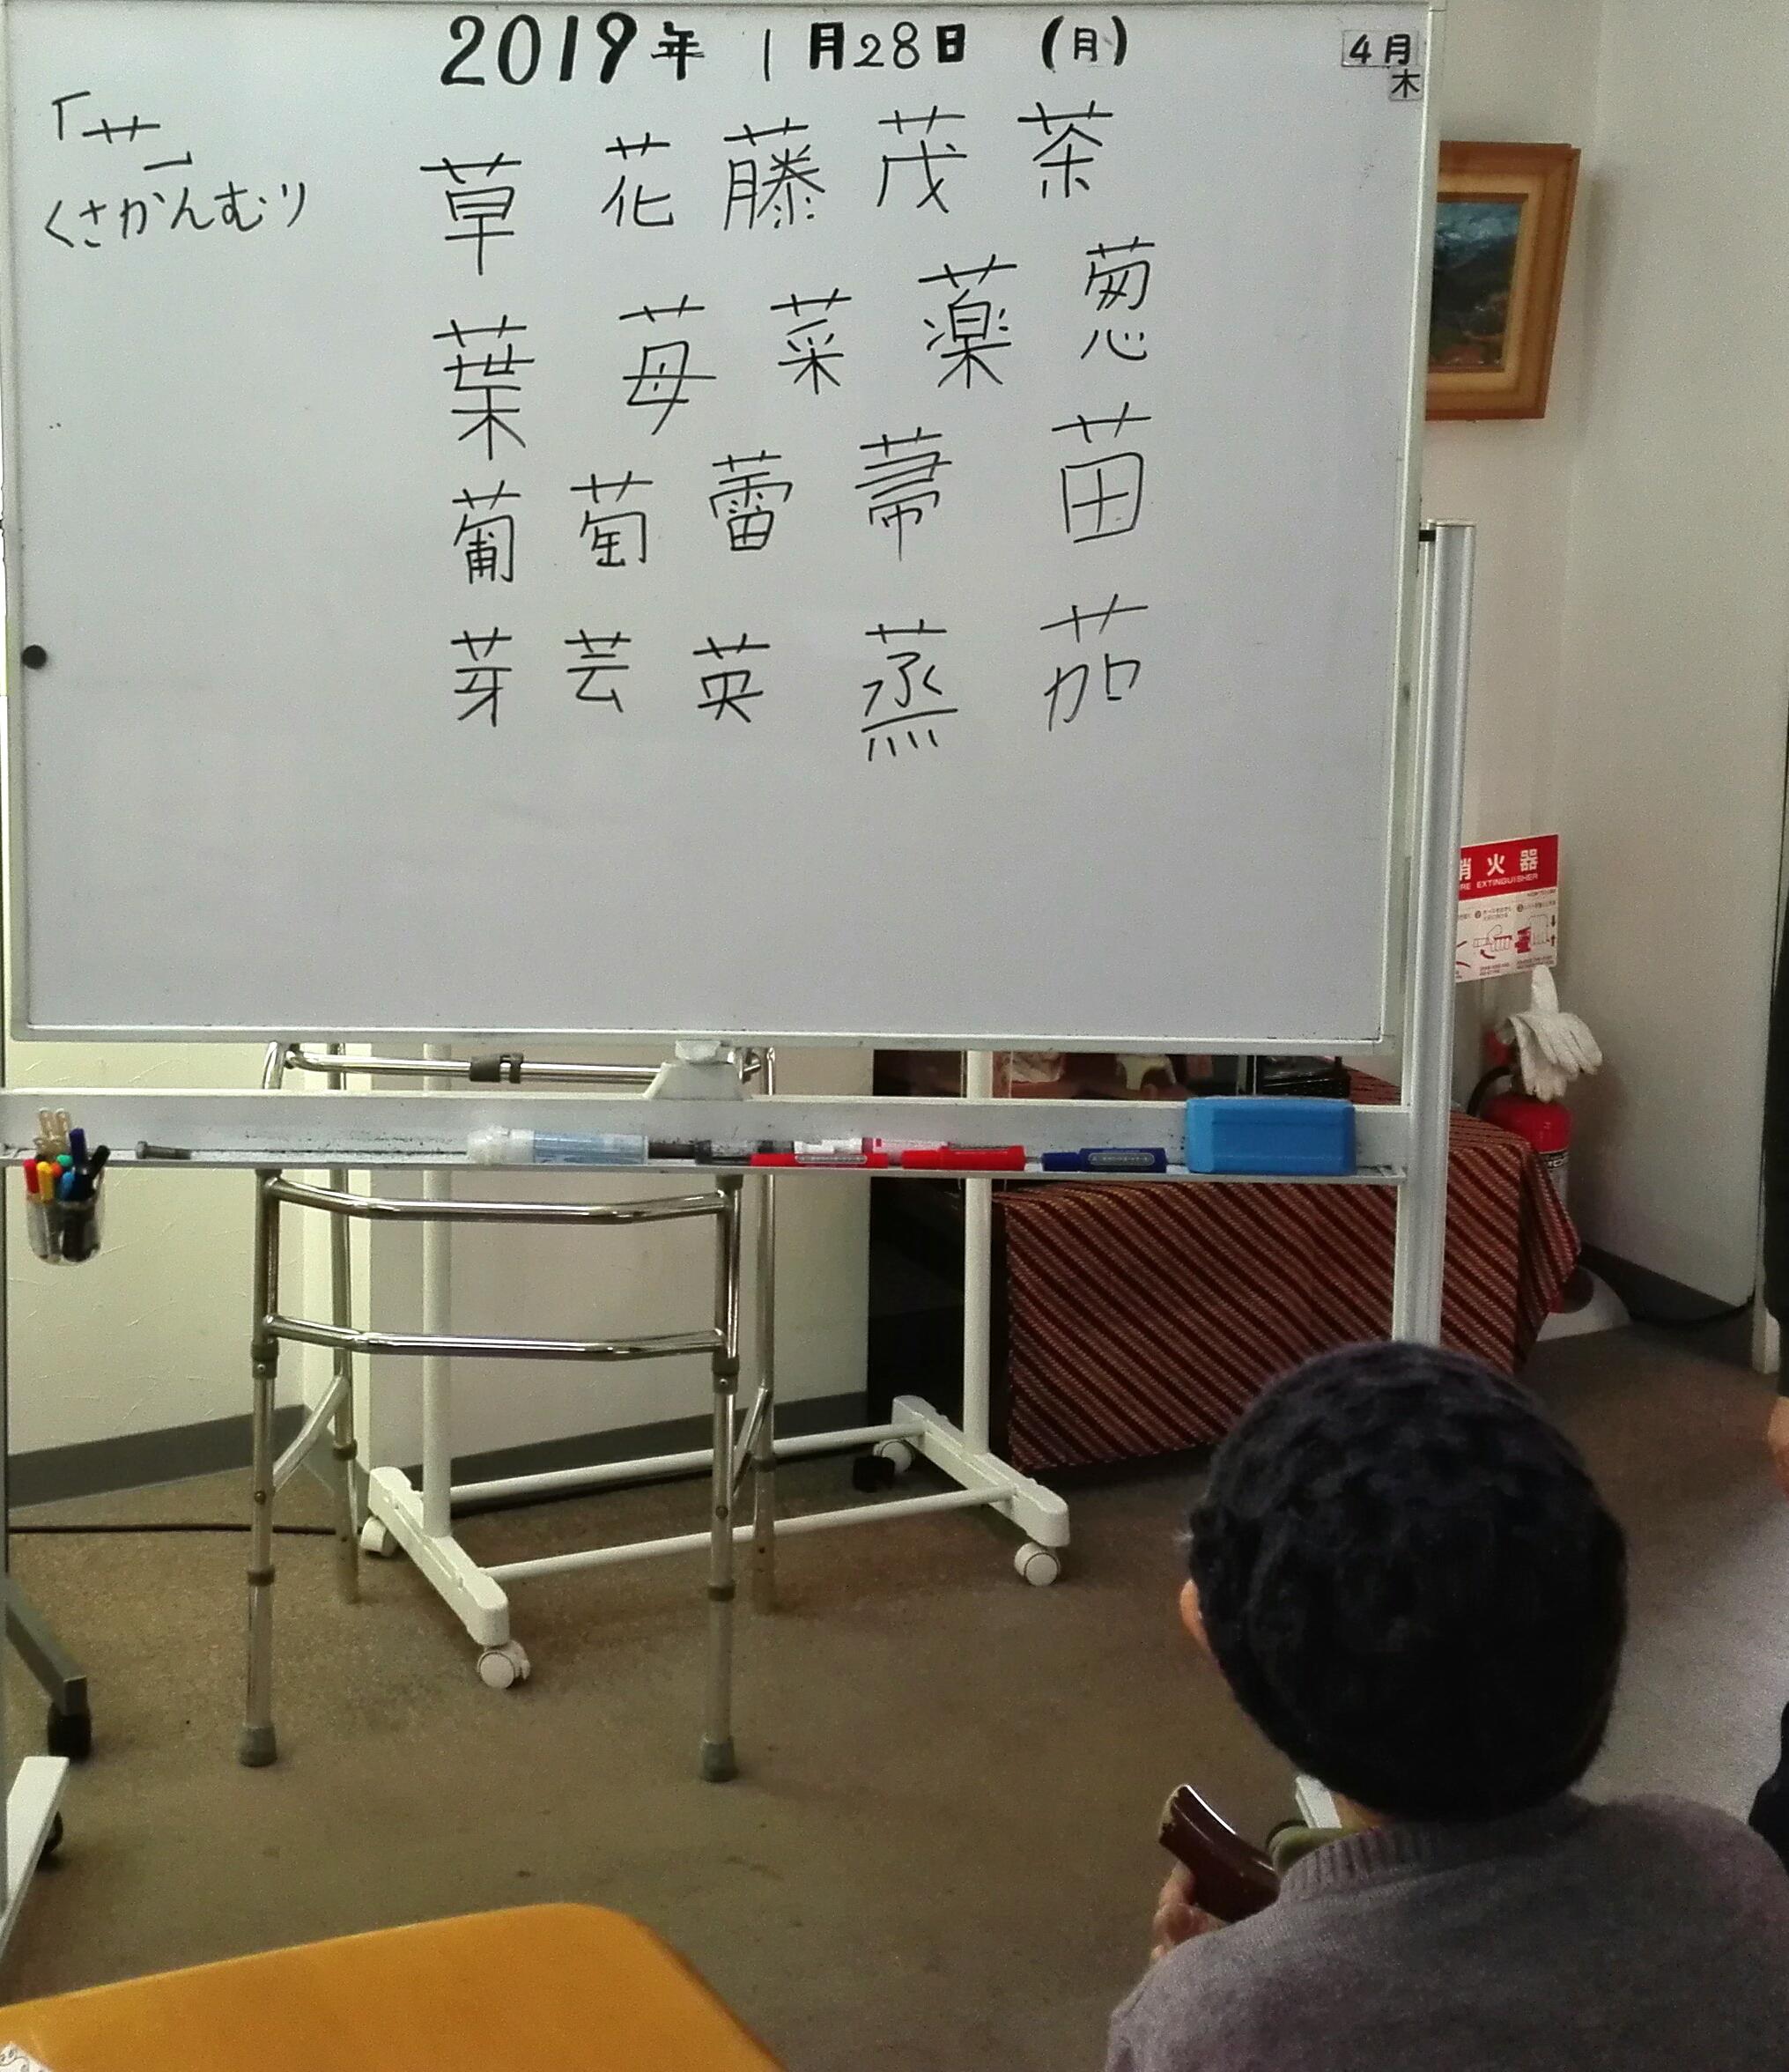 2019年 1月28日 (月)
4月
木
「艹」
くさかんむり
草 花 藤 茂 茶
葉 苺 菜 薬 葱
葡 萄 蕾 菷 苗
芽 芸 英 蒸 茄
消火器
FIRE EXTINGUISHER